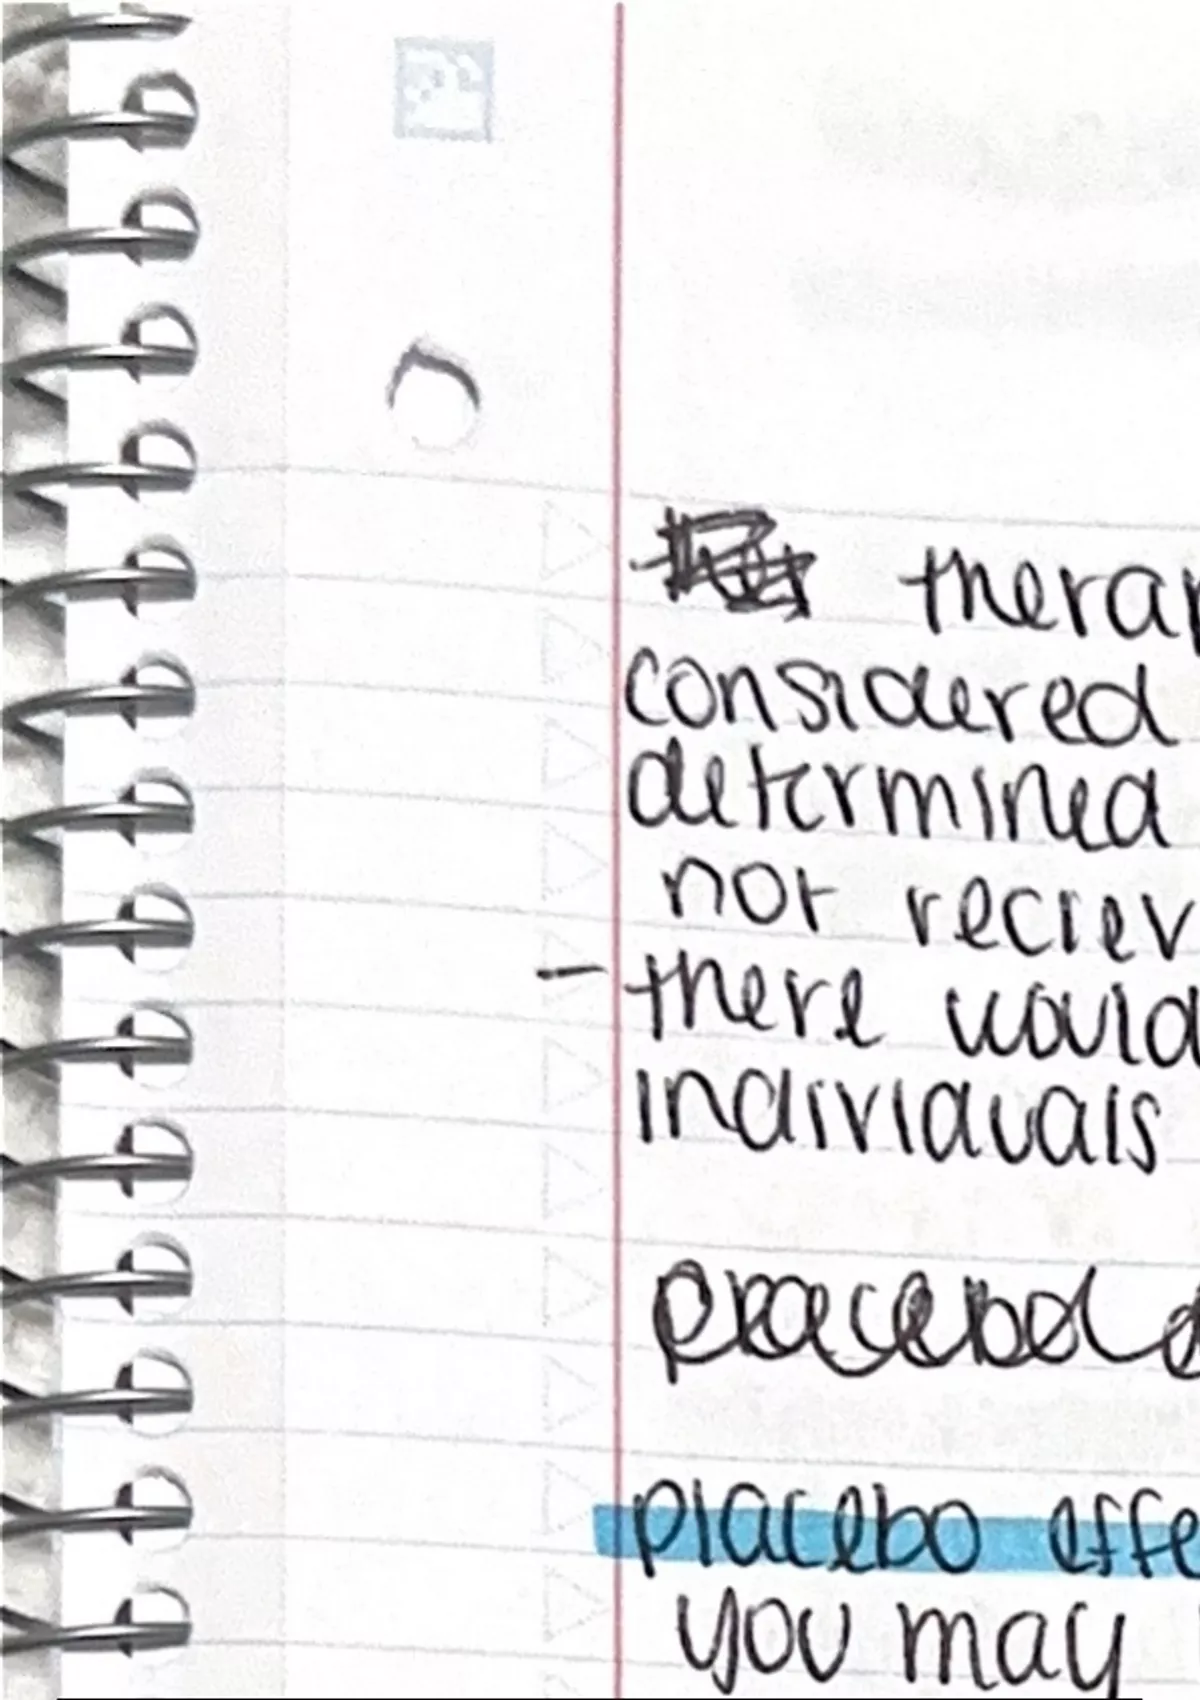 therap
considered
determined
not reciev
- there would
individuals
placebo effe
you may